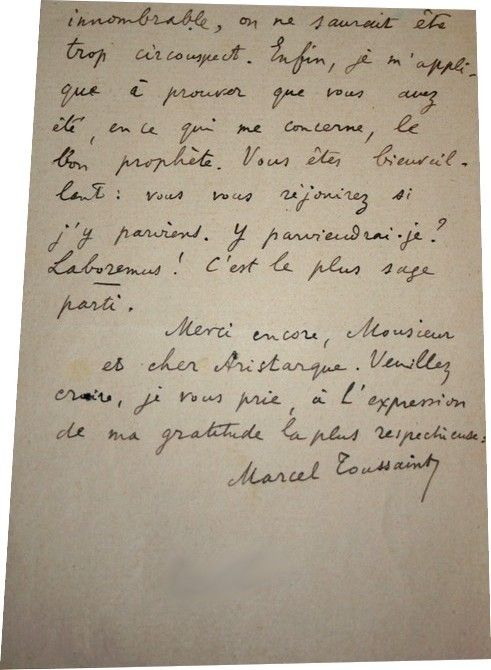 innombrable, on ne saurait être
trop circonspect. Enfin, je m'appli-
que à prouver que vous avez
été, en ce qui me concerne, le
bon prophète. Vous êtes bienveil-
lant : vous vous réjouirez si
j'y parviens. Y parviendrai-je ?
Laboremus ! C'est le plus sage
parti.
Merci encore, Monsieur
et cher Aristarque. Veuillez
croire, je vous prie, à l'expression
de ma gratitude la plus respectueuse.
Marcel Toussaint